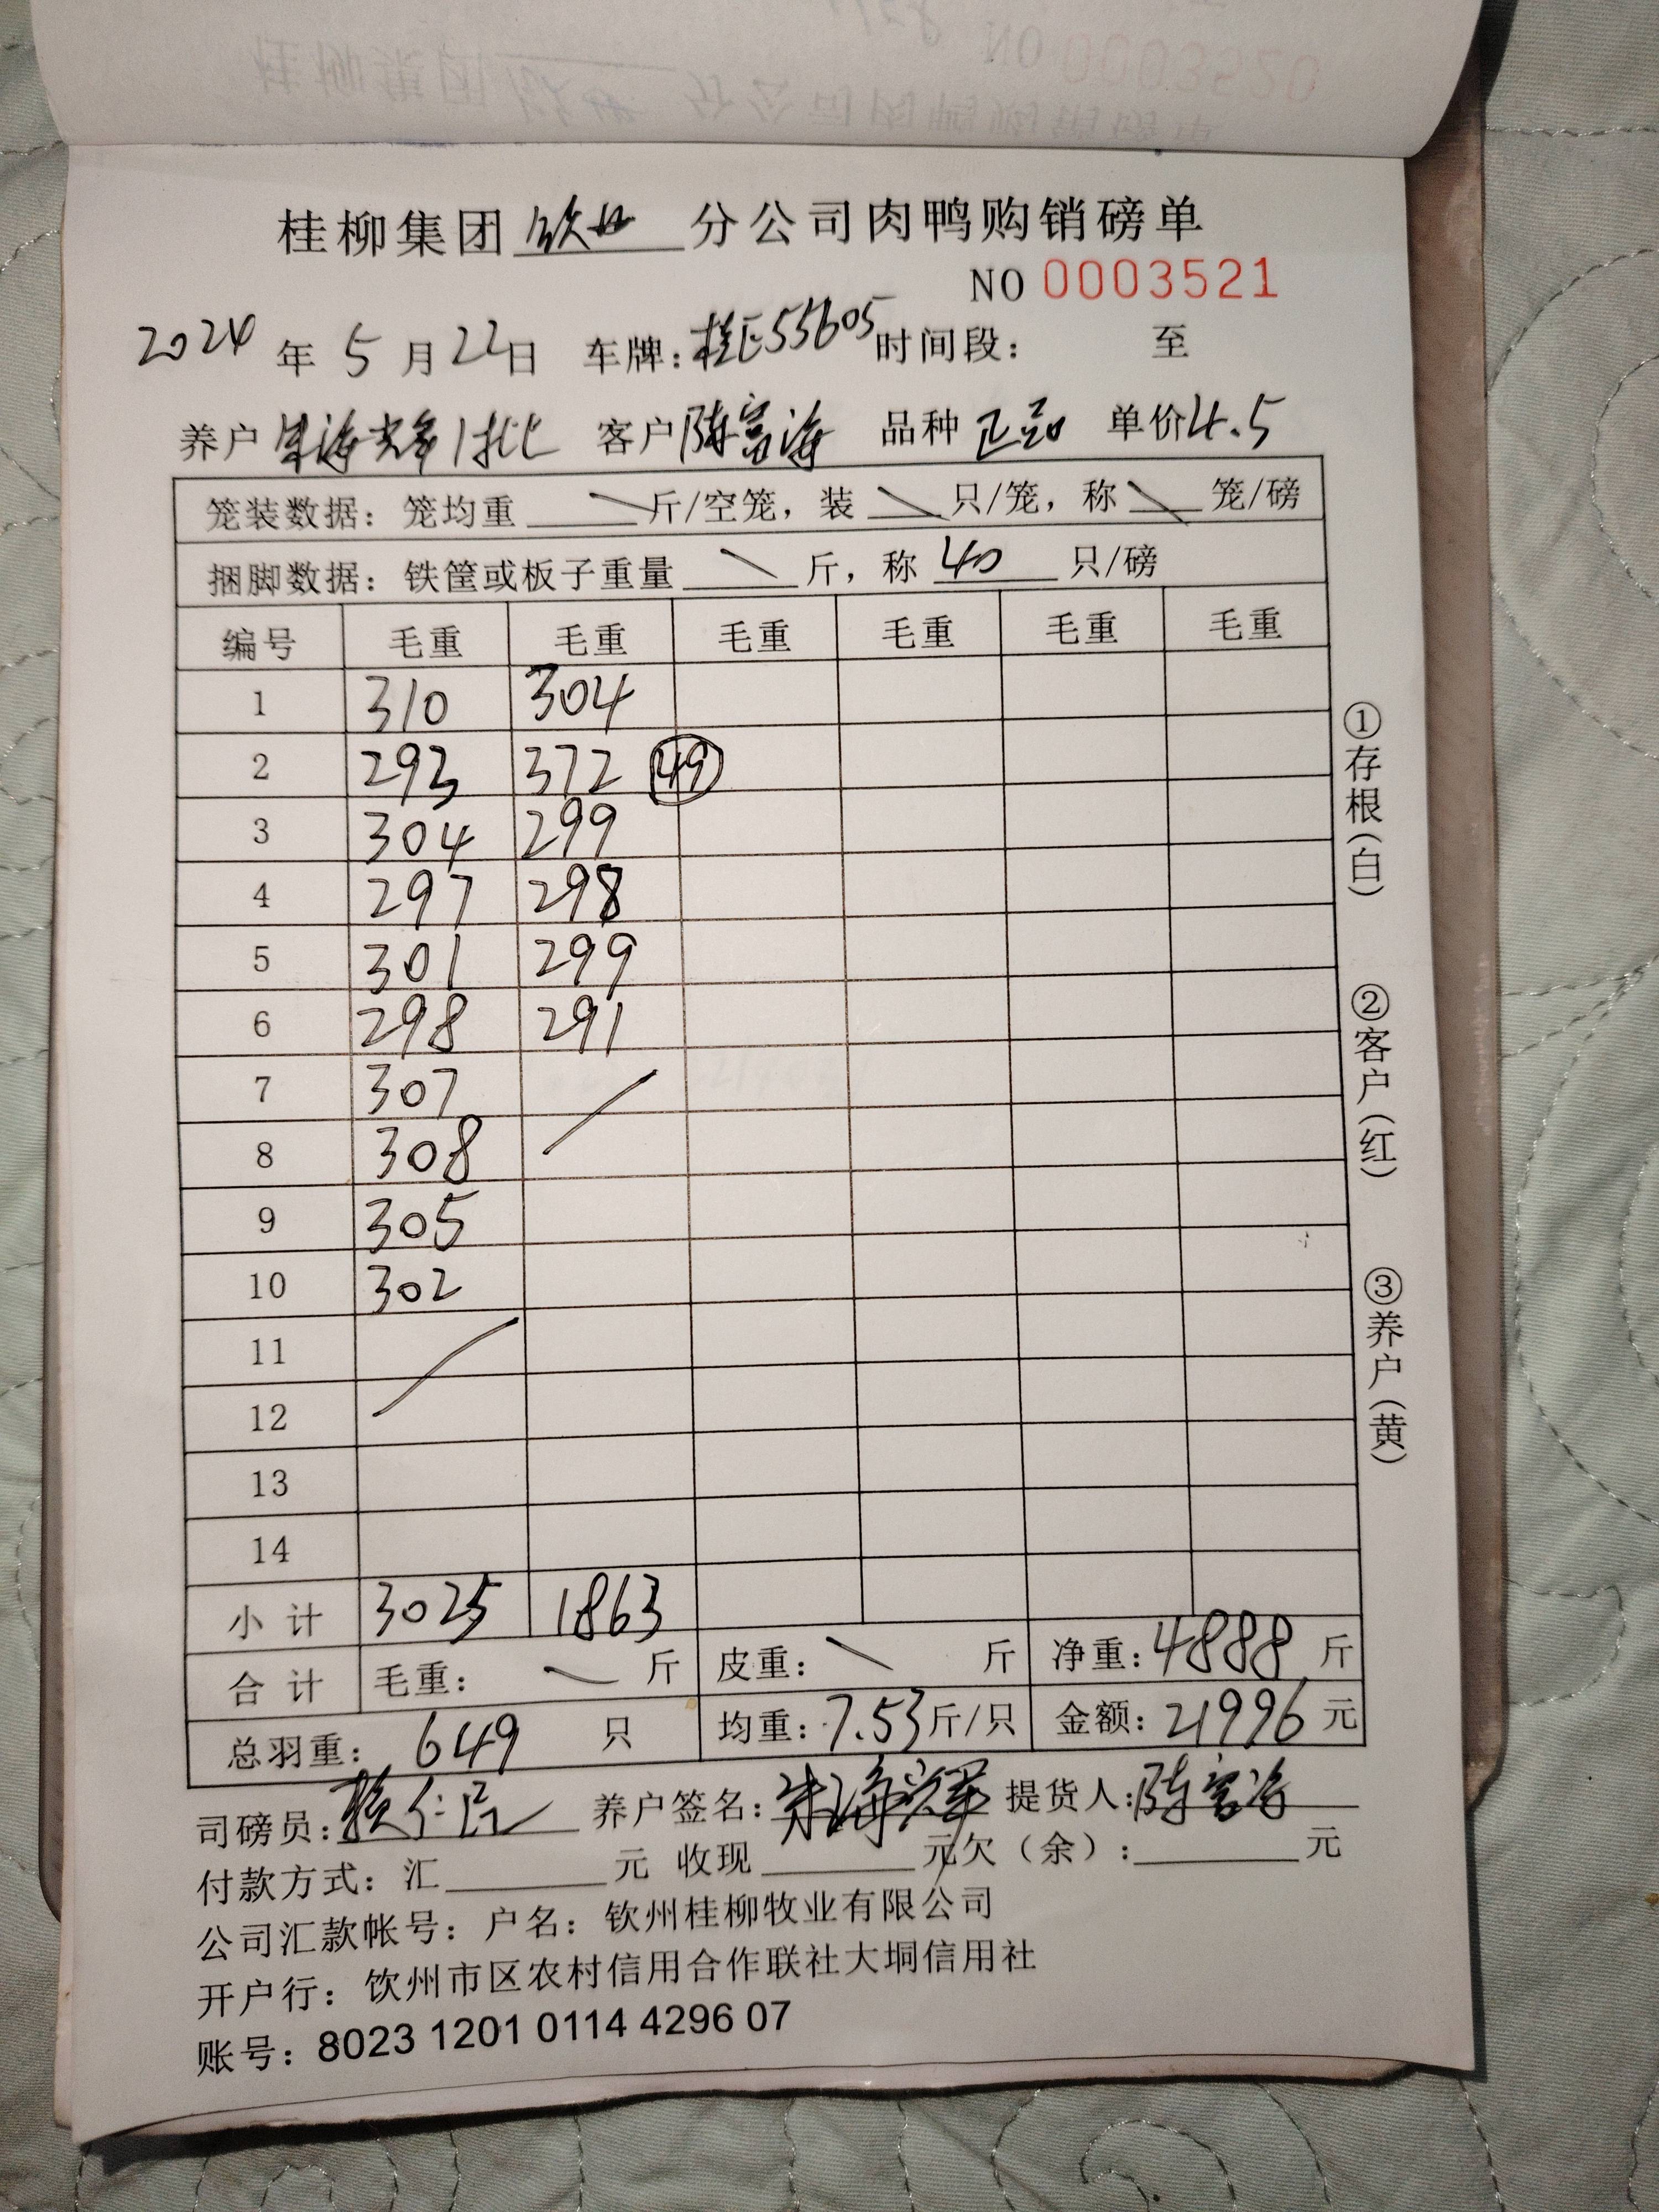 桂柳集团 钦州 分公司肉鸭购销磅单
NO 0003521
2024 年 5 月 22 日 车牌：桂E55605 时间段： 至
养户 朱海辉1批 客户 陈富海 品种 正品 单价 4.5
笼装数据：笼均重 \ 斤/空笼，装 \ 只/笼，称 \ 笼/磅
捆脚数据：铁筐或板子重量 \ 斤，称 40 只/磅
编号 毛重 毛重 毛重 毛重 毛重 毛重
1 310 304
2 293 372 49
3 304 299
4 297 298
5 301 299
6 298 291
7 307
8 308
9 305
10 302
11
12
13
14
小计 3025 1863
合计 毛重： \ 斤 皮重： \ 斤 净重：4888 斤
总羽重： 649 只 均重：7.53斤/只 金额：21996 元
司磅员： 养户签名：朱海辉 提货人：陈富海
付款方式：汇 元 收现 元 欠（余）： 元
公司汇款帐号：户名：钦州桂柳牧业有限公司
开户行：钦州市区农村信用合作联社大垌信用社
账号：8023 1201 0114 4296 07
①存根（白）
②客户（红）
③养户（黄）